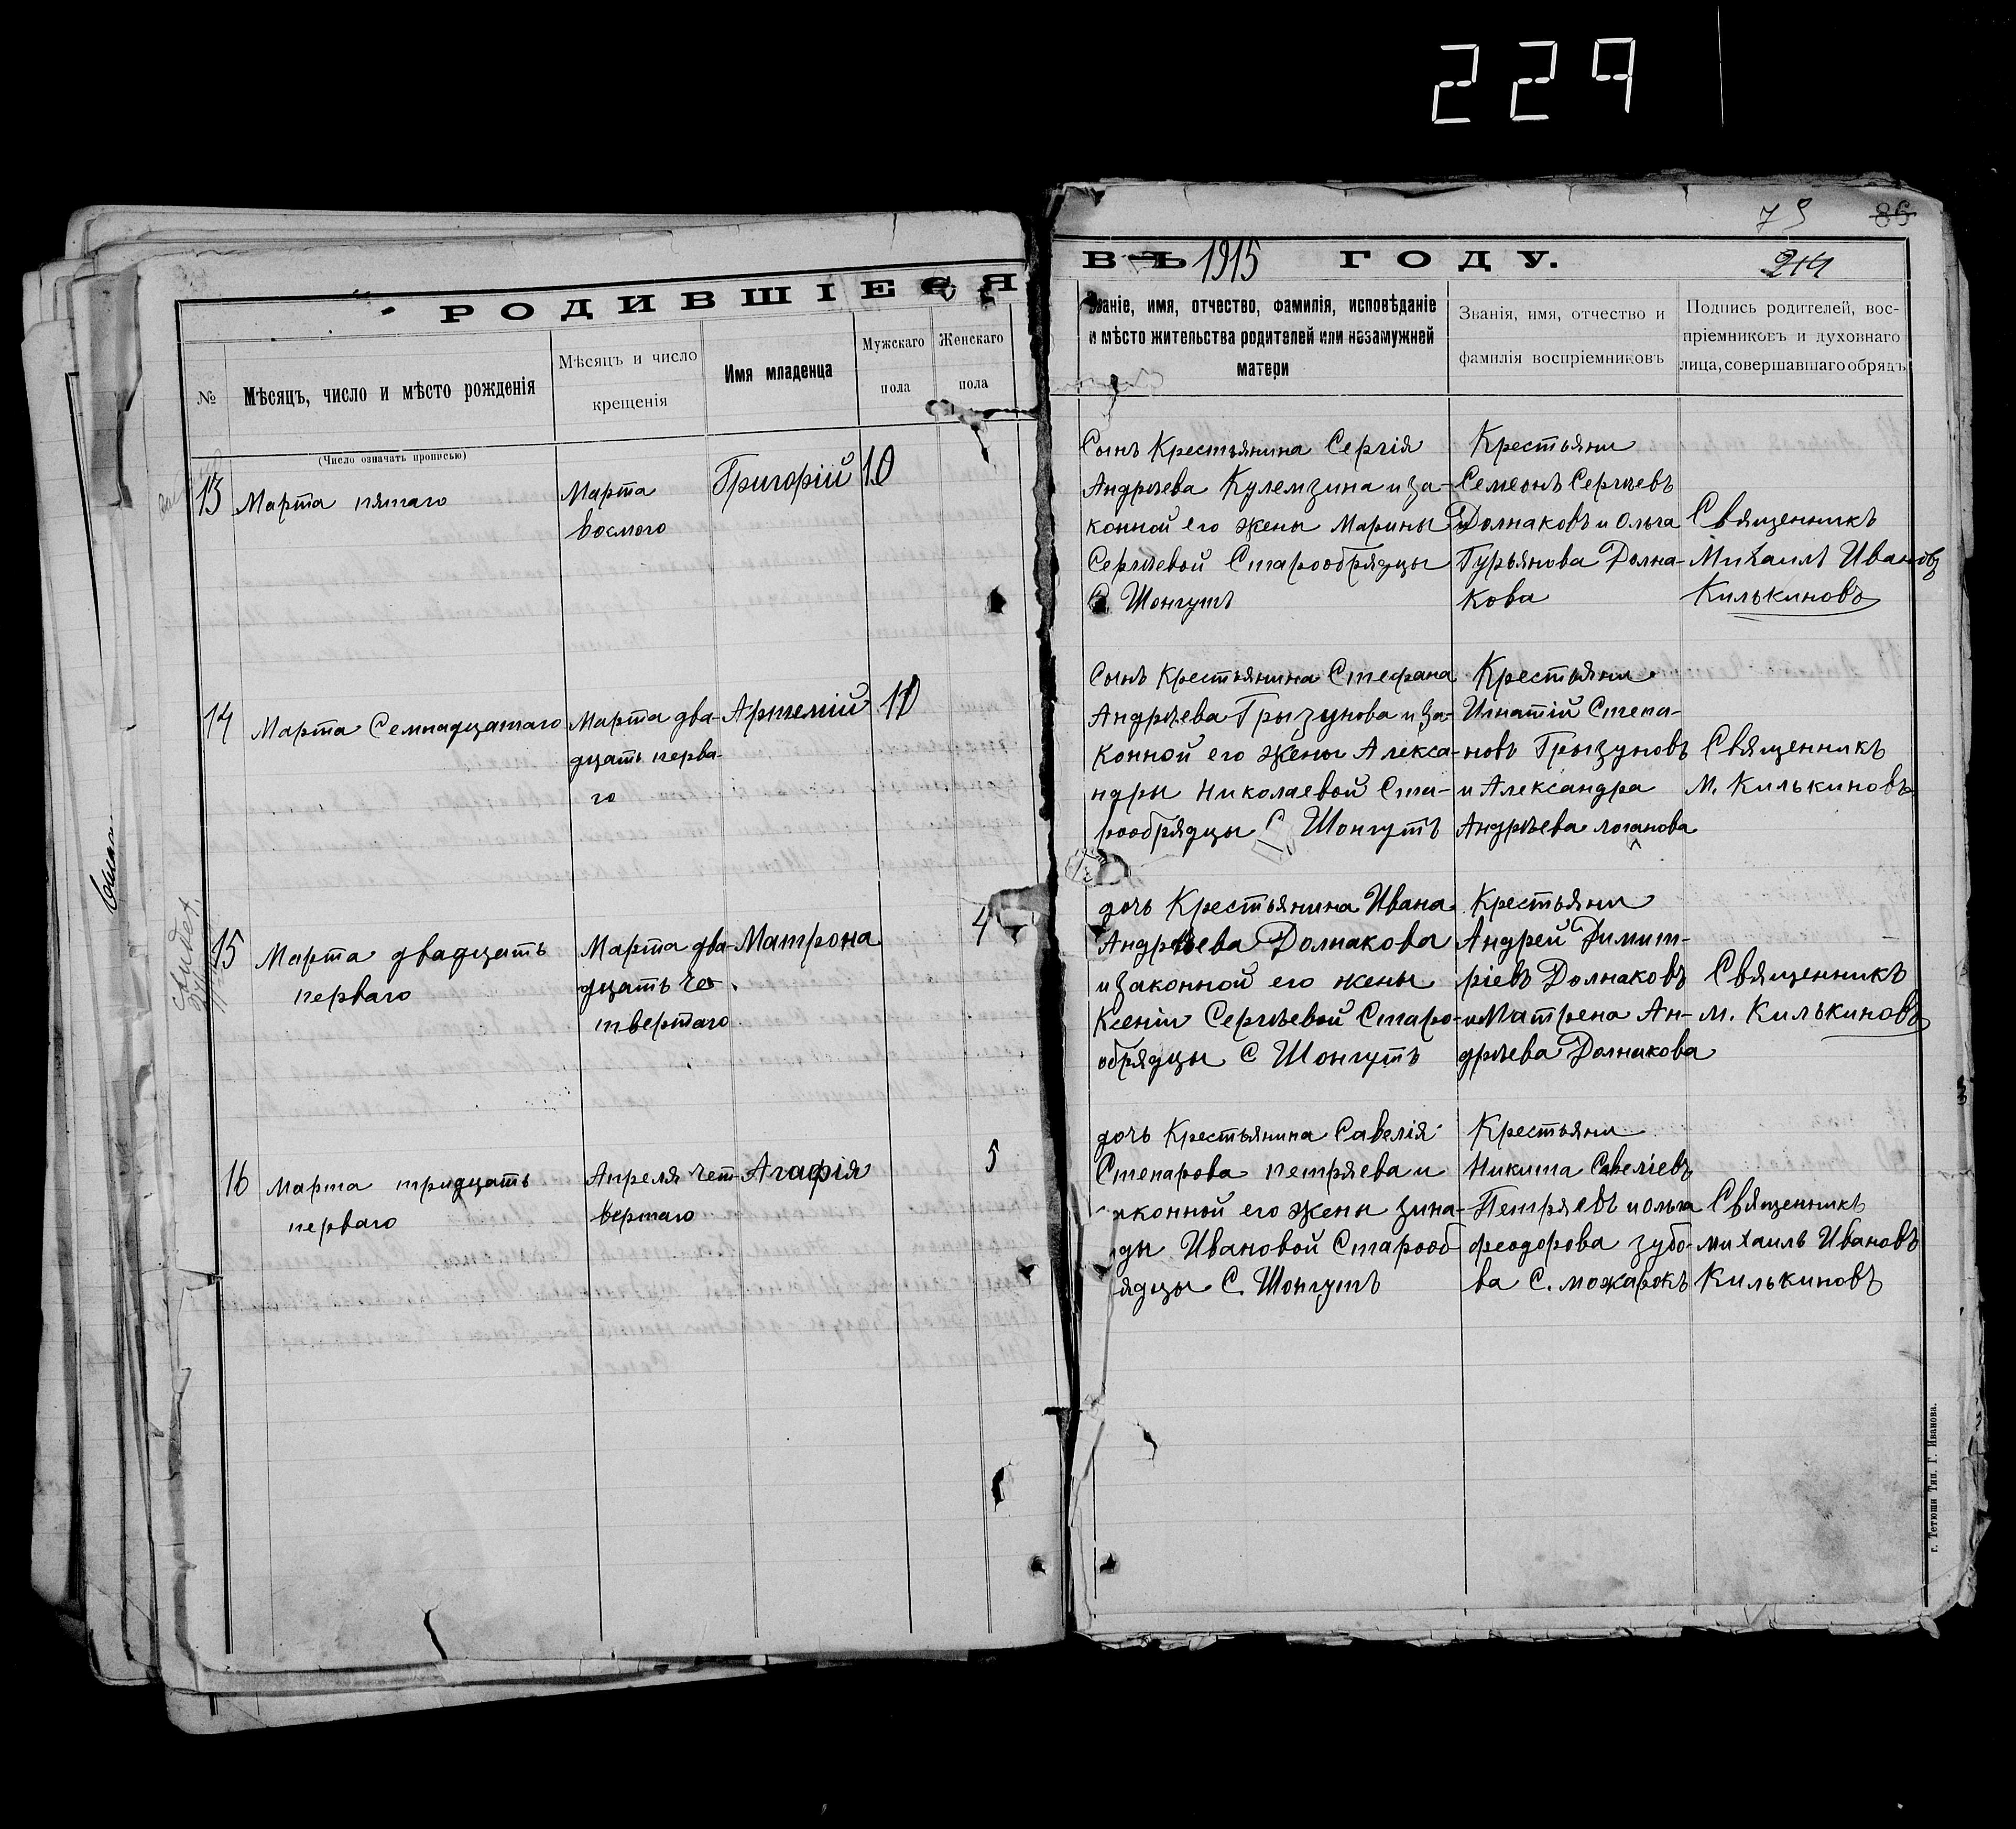 229
75 86
РОДИВШІЕСЯ
ВЪ 1915 ГОДУ.
№
Мѣсяцъ, число и мѣсто рожденія
Мѣсяцъ и число
крещенія
Имя младенца
Мужскаго
пола
Женскаго
пола
Званіе, имя, отчество, фамилія, исповѣданіе
и мѣсто жительства родителей или незамужней
матери
Званія, имя, отчество и
фамилія воспріемниковъ
Подпись родителей, вос-
пріемниковъ и духовнаго
лица, совершавшаго обрядъ
(Число означать прописью)
13
Марта пятаго
Марта
восмого
Григорій
10
Сынъ Крестьянина Сергія
Андрѣева Кулемзина и за-
конной его жены Марины
Сергѣевой Старообрядцы
С. Шонгутъ
Крестьяни
Семеонъ Сергѣевъ
Долнаковъ и Ольга
Гурьянова Долна-
кова
Священникъ
Михаилъ Ивановъ
Килькиновъ
14
Марта Семнадцатаго
Марта два-
дцать перва-
го
Артемій
11
Сынъ Крестьянина Стефана
Андрѣева Грызунова и За-
конной его жены Алекса-
ндры Николаевой Ста-
рообрядцы С Шонгутъ
Крестьяни
Игнатій Степа-
новъ Грызуновъ
и Александра
Андрѣева логанова
Священникъ
М. Килькиновъ
15
Марта двадцать
перваго
Марта два-
дцать че-
твертаго
Матрона
4
дочь Крестьянина Ивана
Андрѣева Долнакова
и законной его жены
Ксеніи Сергѣевой Старо-
обрядцы С Шонгутъ
Крестьяни
Андрей Димит-
ріевъ Долнаковъ
и Матрена Ан-
дрѣева Долнакова
Священникъ
М. Килькиновъ
16
Марта тридцать
перваго
Апреля чет-
вертаго
Агафія
5
дочь Крестьянина Савелія
Степарова петряева и
аконной его жены зина-
ды Ивановой Старооб
ядцы С. Шонгутъ
Крестьяни
Никита Савеліевъ
Петряевъ и ольга
феодорова зубо-
ва С. можарокъ
Священникъ
михаилъ Ивановъ
Килькиновъ
г. Тетюши Тип. Г. Иванова.